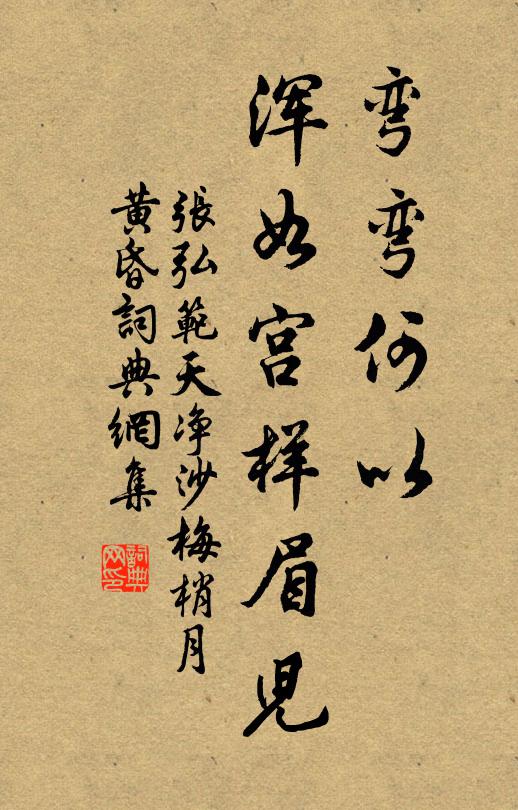 弯弯何以
浑如宫样眉児
張弘範天净沙梅梢月
黄昏詞典網集
詞典
网印